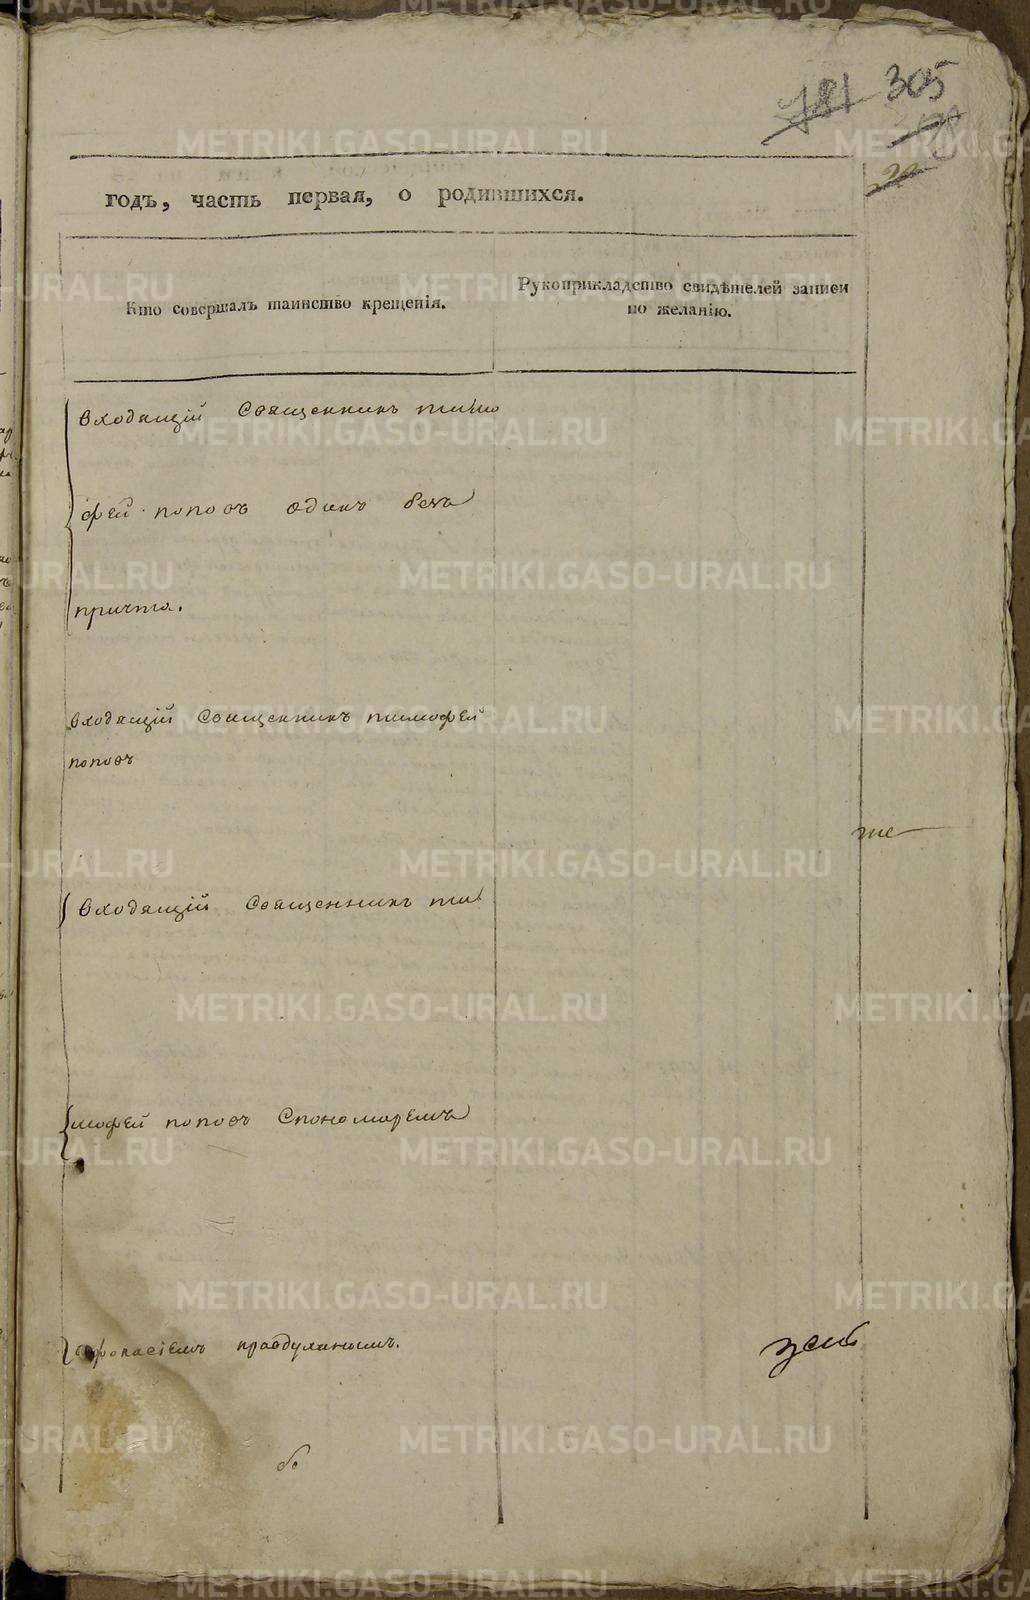 305
годъ, часть первая, о родившихся.
Кто совершалъ таинство крещенія.
Рукоприкладство свидѣтелей записи по желанію.
входящій Священникъ тимо
фей поповъ один безъ
причта.
входящій Священникъ тимофей
поповъ
же
входящій Священникъ ти
мофей поповъ Спономаремъ
правдулинымъ.
METRIKI.GASO-URAL.RU